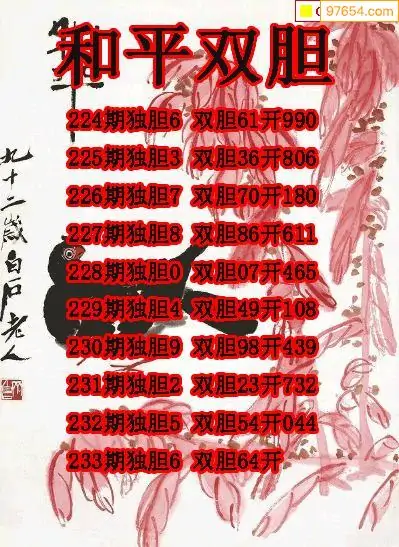 97654.com
和平双胆
224期独胆6 双胆61开990
225期独胆3 双胆36开806
226期独胆7 双胆70开180
227期独胆8 双胆86开611
228期独胆0 双胆07开465
229期独胆4 双胆49开108
230期独胆9 双胆98开439
231期独胆2 双胆23开732
232期独胆5 双胆54开044
233期独胆6 双胆64开
九十二岁白石老人